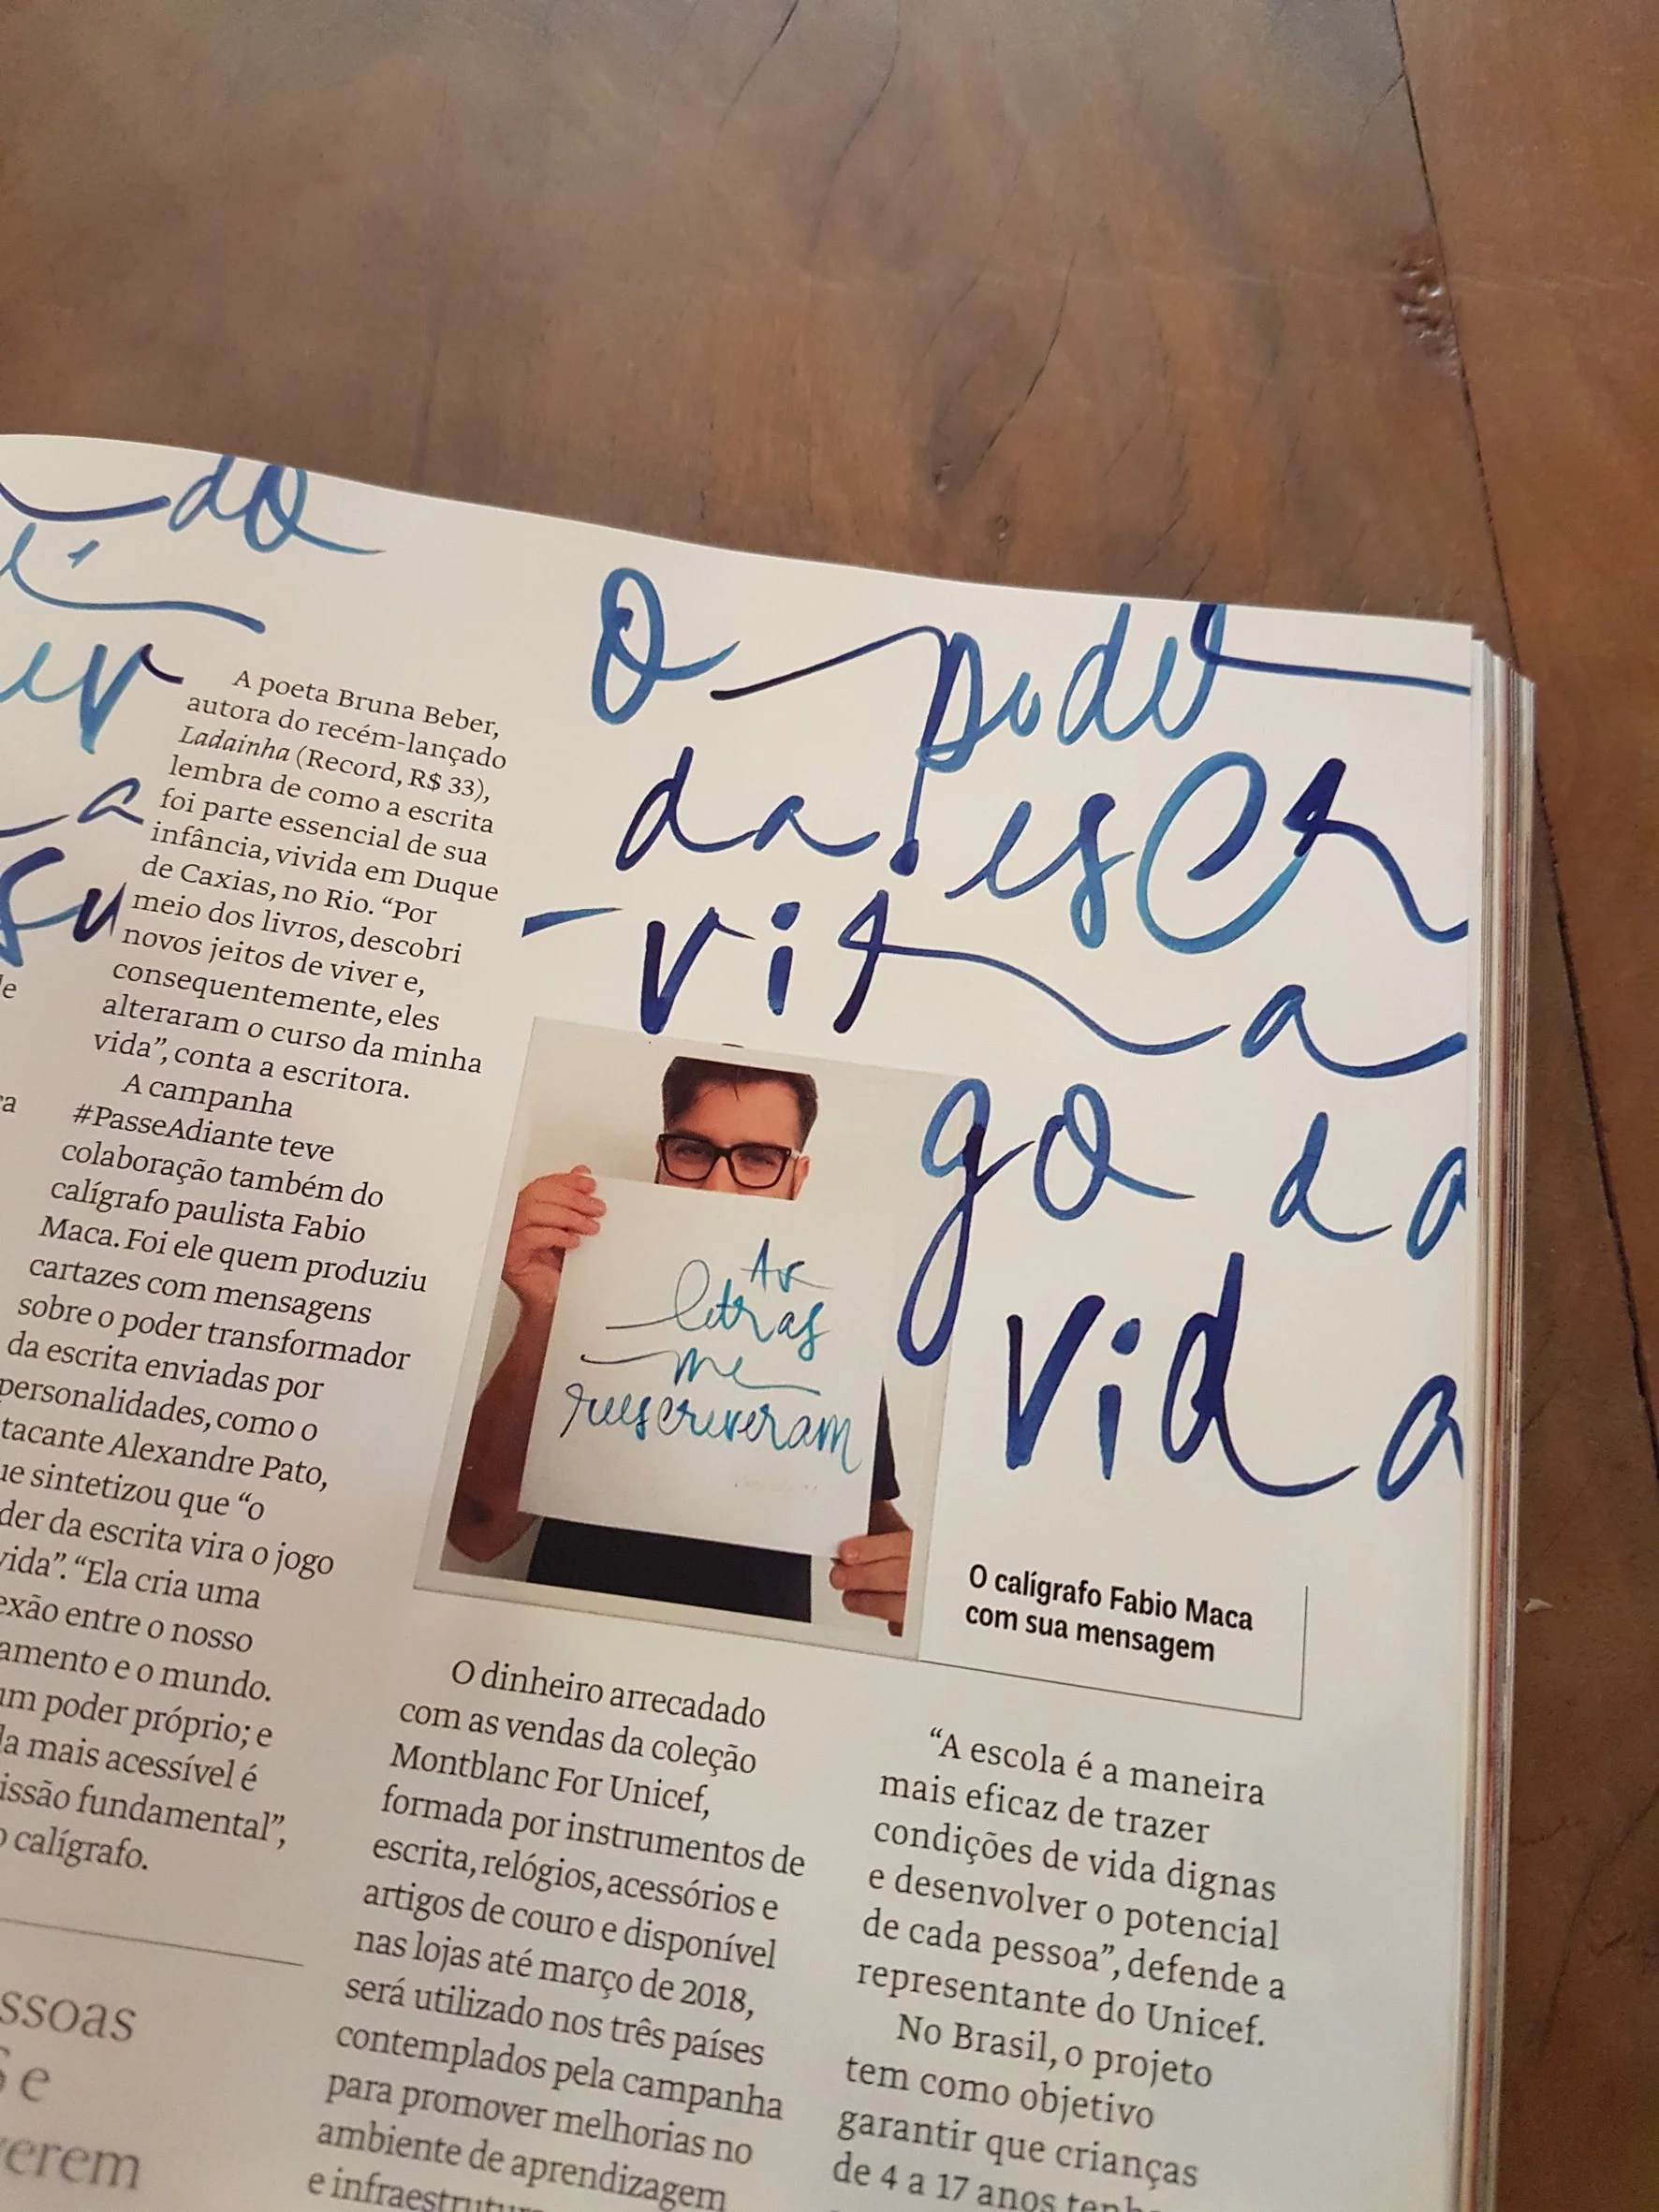 do
er
a
su
A poeta Bruna Beber,
autora do recém-lançado
Ladainha (Record, R$ 33),
lembra de como a escrita
foi parte essencial de sua
infância, vivida em Duque
de Caxias, no Rio. “Por
meio dos livros, descobri
novos jeitos de viver e,
consequentemente, eles
alteraram o curso da minha
vida”, conta a escritora.
A campanha
#PasseAdiante teve
colaboração também do
calígrafo paulista Fabio
Maca. Foi ele quem produziu
cartazes com mensagens
sobre o poder transformador
da escrita enviadas por
personalidades, como o
tacante Alexandre Pato,
ue sintetizou que “o
der da escrita vira o jogo
vida”. “Ela cria uma
exão entre o nosso
amento e o mundo.
um poder próprio; e
la mais acessível é
issão fundamental”,
o calígrafo.
ssoas
e
verem
O poder
da escr
vira
go da
vida
As
letras
me
reescreveram
O calígrafo Fabio Maca
com sua mensagem
O dinheiro arrecadado
com as vendas da coleção
Montblanc For Unicef,
formada por instrumentos de
escrita, relógios, acessórios e
artigos de couro e disponível
nas lojas até março de 2018,
será utilizado nos três países
contemplados pela campanha
para promover melhorias no
ambiente de aprendizagem
e infraestrutur
“A escola é a maneira
mais eficaz de trazer
condições de vida dignas
e desenvolver o potencial
de cada pessoa”, defende a
representante do Unicef.
No Brasil, o projeto
tem como objetivo
garantir que crianças
de 4 a 17 anos tenh